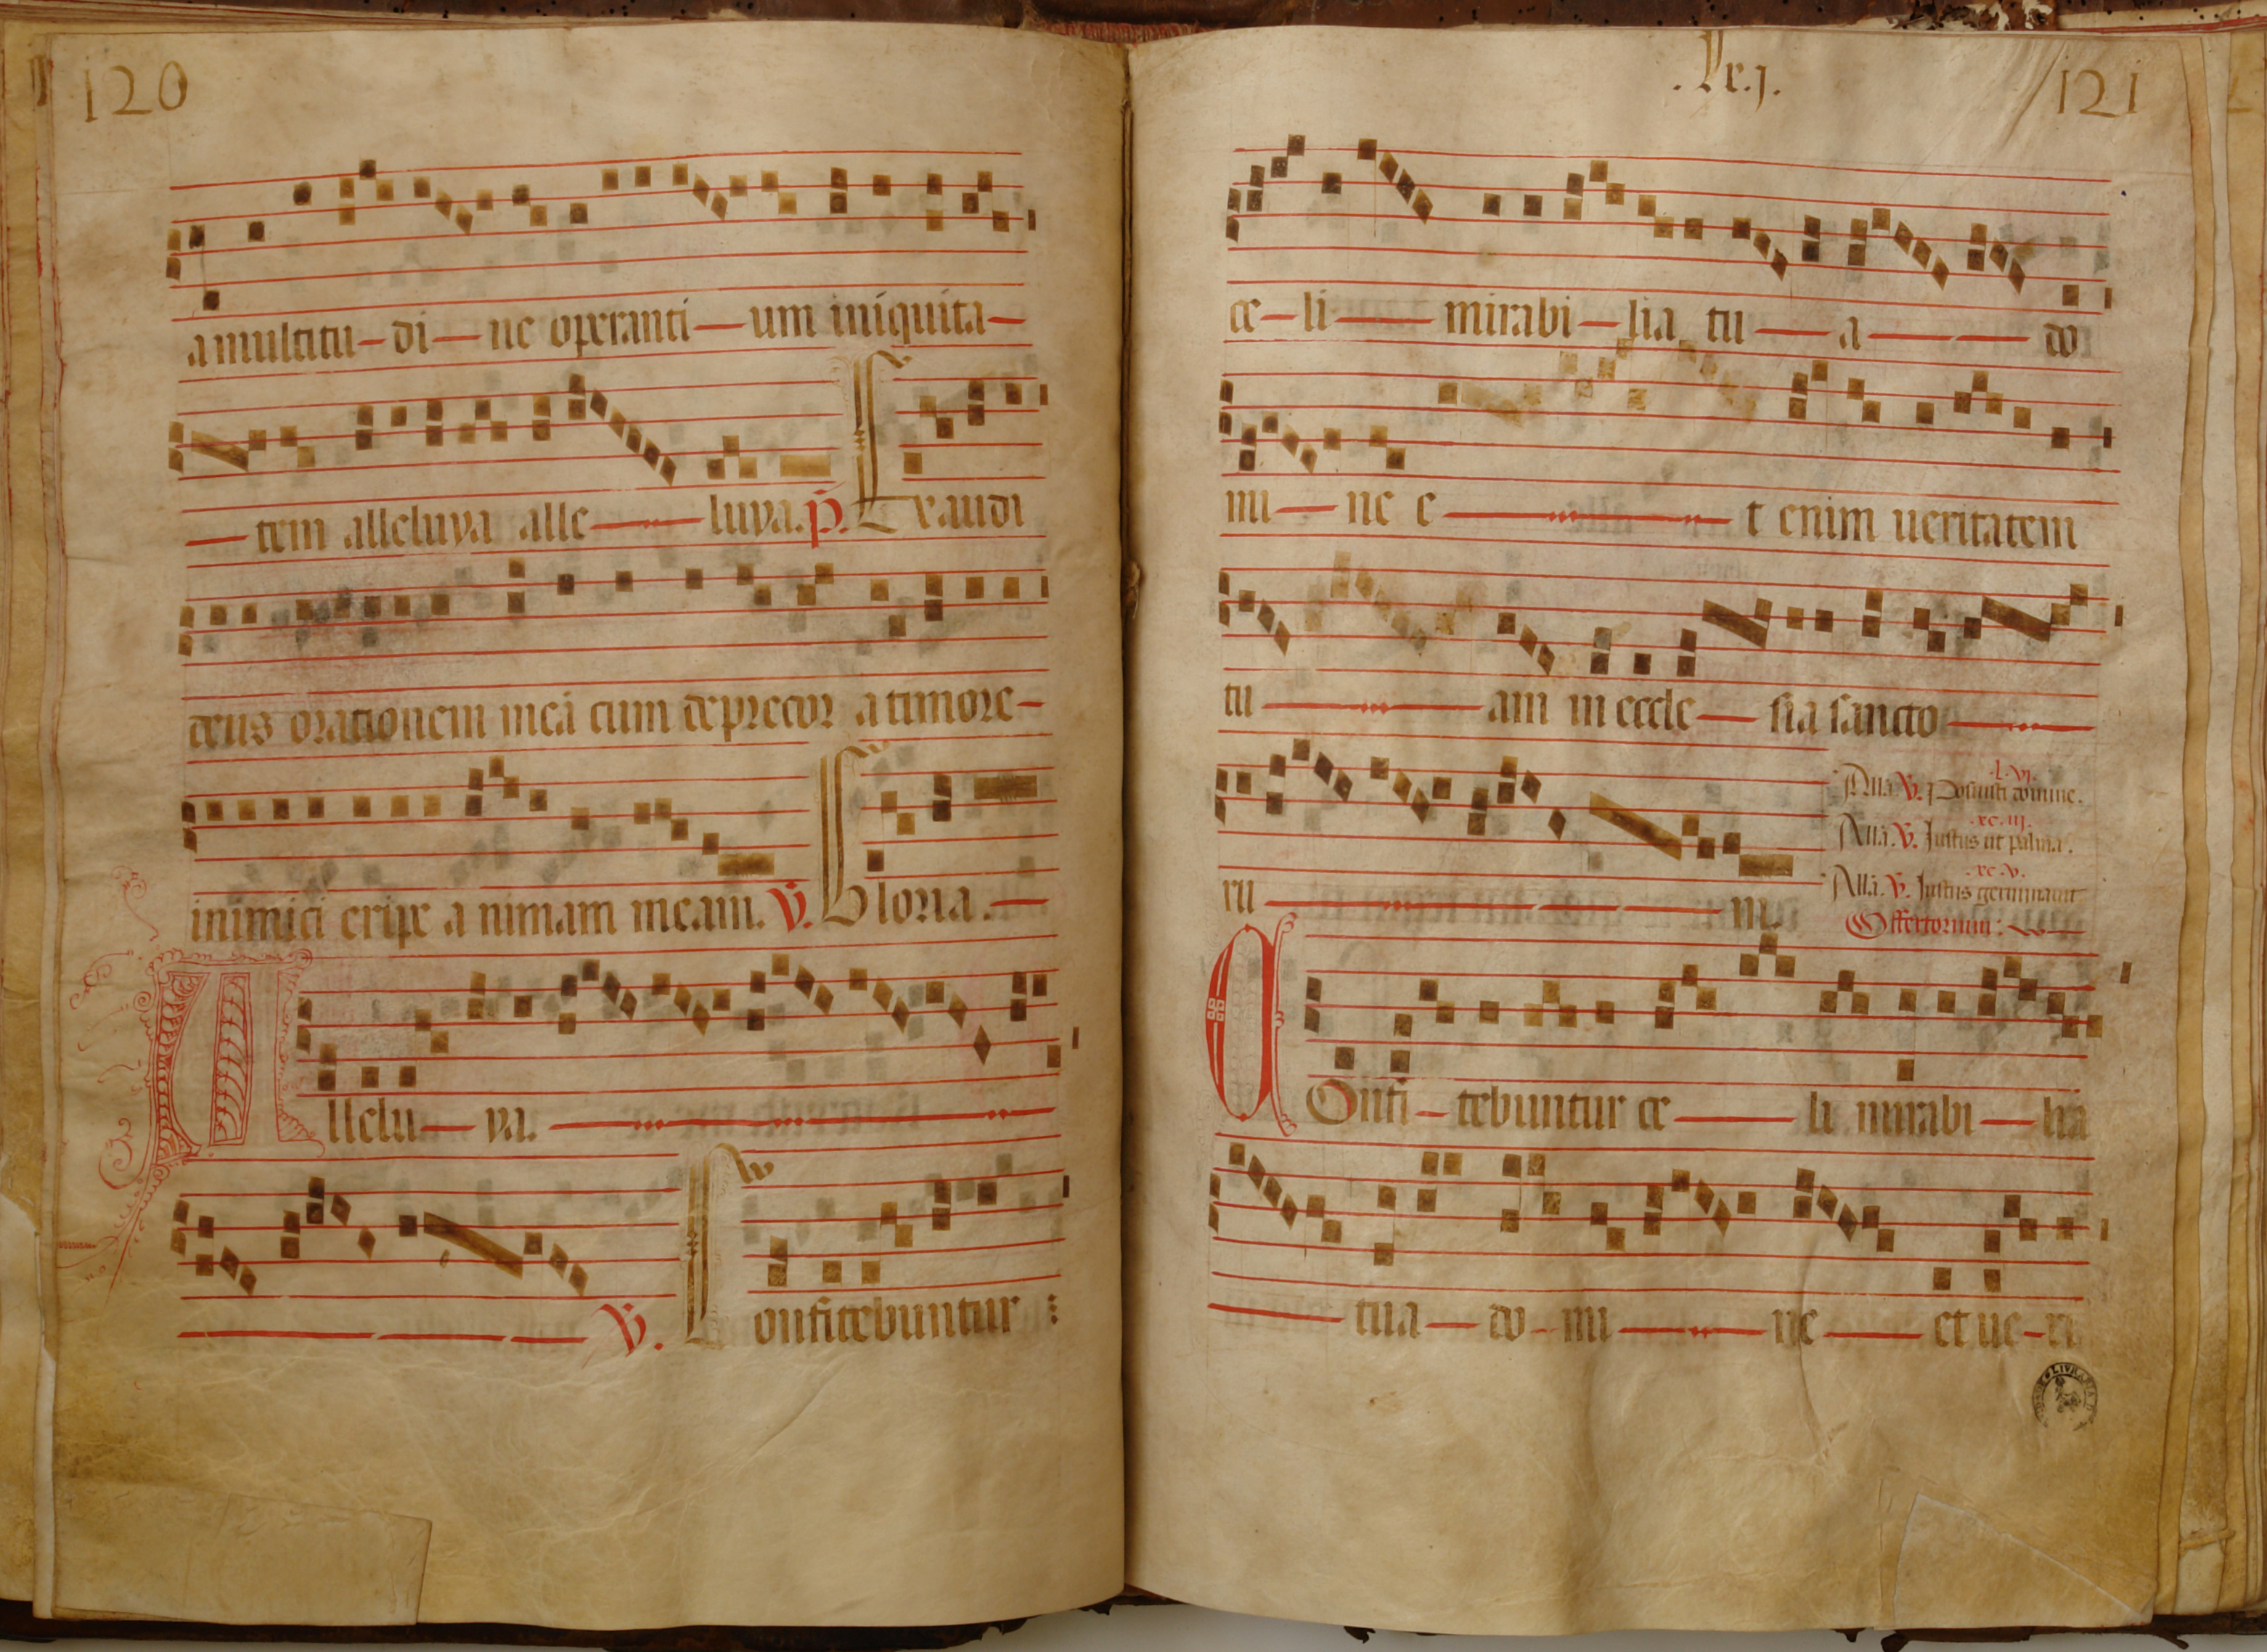 120
a multitu-di-ne operanti-um iniquita-
-tem alleluya alle-luya. p. Exaudi
deus orationem meā cum deprecor a timore-
inimici eripe a nimam meam. V. Gloria.
Allelu-ya.
V. Confitebuntur :
121
ce-li mirabi-lia tu-a do
mi-ne e-t enim ueritatem
tu-am in eccle-sia sancto-
.l.vj.
Allā V. Posuisti domine.
.xc.iij.
Allā. V. Iustus ut palma.
.xc.v.
Allā. V. Iustus germinauit
ru-m.
Offertorium:
COnfi-tebuntur ce-li mirabi-lia
tua-do-mi-ne-et ue-ri